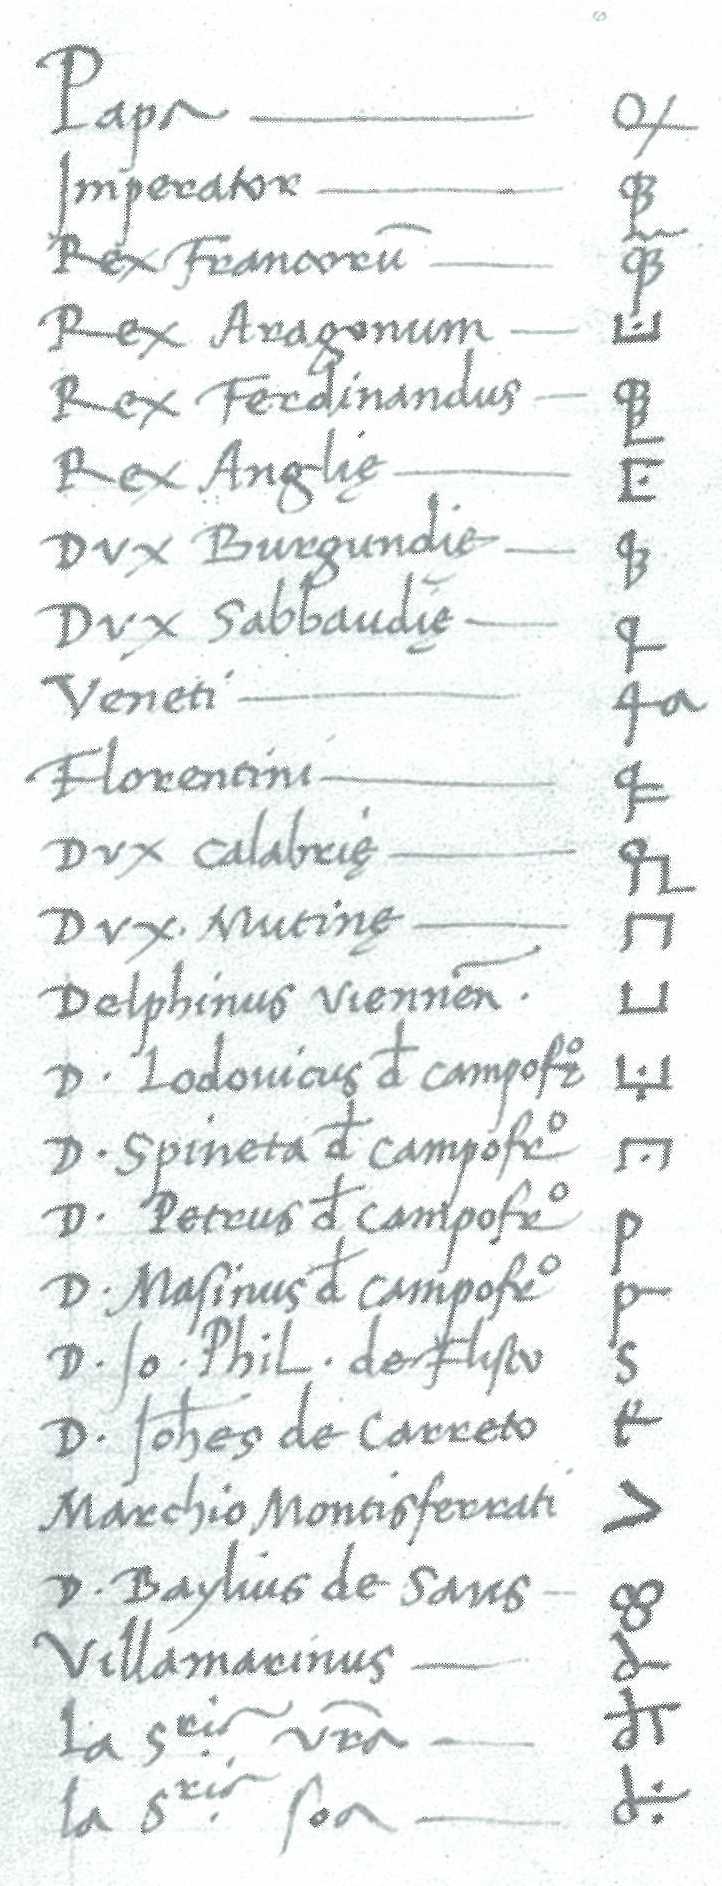 Papa
Imperator
Rex Francorū
Rex Aragonum
Rex Ferdinandus
Rex Anglię
Dux Burgundię
Dux Sabbaudię
Veneti
Florentini
Dux Calabrię
Dux Mutinę
Delphinus viennen̄.
D. Lodouicus đ campofrº
D. Spineta đ campofrº
D. Petrus đ campofrº
D. Masinus đ campofrº
D. Jo. Phil. de Flisco
D. Johes de Carreto
Marchio Montisferrati
D. Baylius de
Villamarinus
La Sria vra
la Sria soa